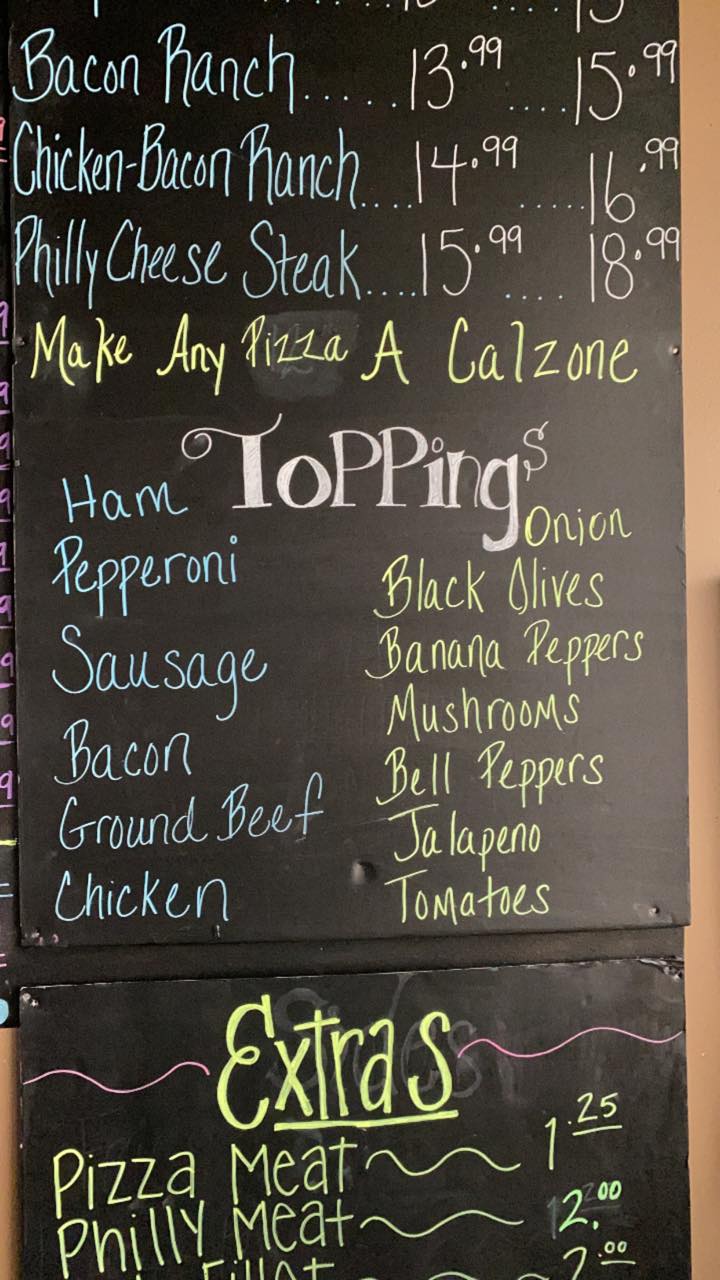 Bacon Ranch......13.99 ....15.99
Chicken-Bacon Ranch....14.99 .....16.99
Philly Cheese Steak....15.99 .... 18.99
Make Any Pizza A Calzone
Toppings
Ham
Pepperoni
Sausage
Bacon
Ground Beef
Chicken
Onion
Black Olives
Banana Peppers
Mushrooms
Bell Peppers
Jalapeno
Tomatoes
Extras
Pizza Meat 1.25
Philly Meat 2.00
2.00